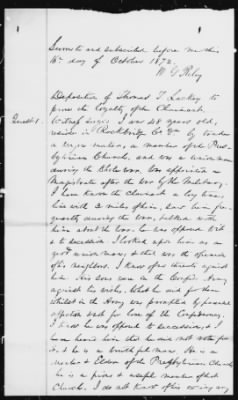 Sworn to and subscribed before me this
16th day of October 1872.
W G Riley
Deposition of Thomas T. Lackey to
prove the loyalty of the Claimant.
Quest 1.
Witness says: I am 48 years old,
reside in Rockbridge Co Va by trade
a member of the Pres-
byterian Church, and was a union man
during the Rebellion. Was appointed a
Magistrate after the war by the Military.
I have known the Claimant a long time,
live with 2 miles of him, saw him fre-
quently during the war, talked with
him about the war. he was opposed to it
& to secession. I looked upon him as a
good union man, & that was the opinion
of his neighbors. I know of no threats against
him. His sons were in the Army
against his wishes. What he said for them
whilst in the Army was prompted by parental
affection not for love of the Confederacy.
I said he was opposed to secession, & I
have heard him that he did not vote for
it, & he is a truthful man. He is a
Elder of the Presbyterian Church
he is a pious & useful member of that
Church. I do not know of his owing any